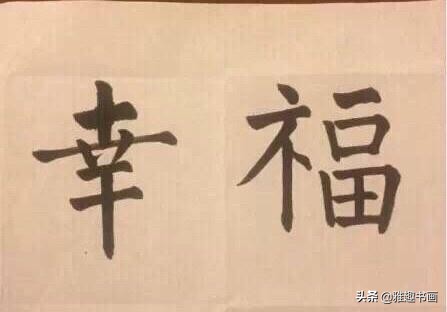 幸福
头条 @雅趣书画